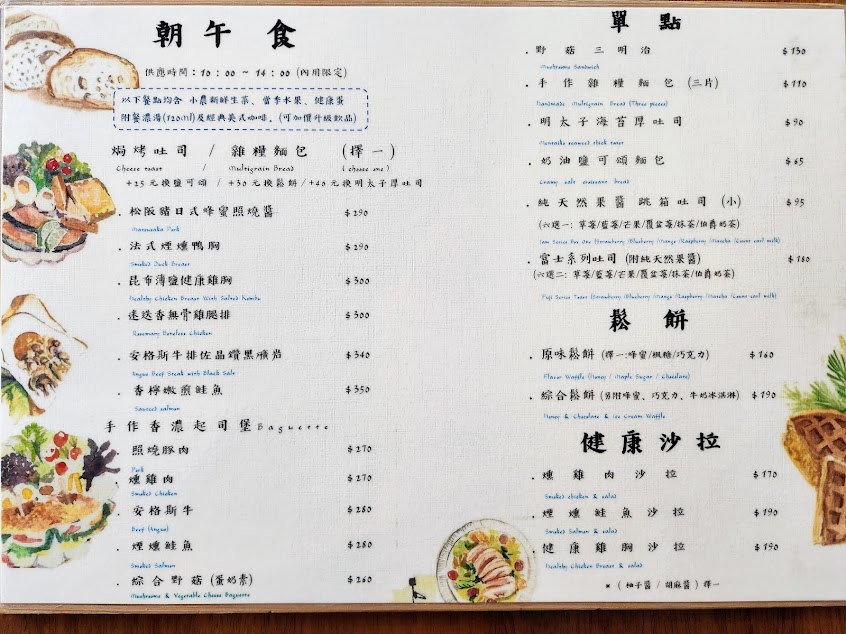 朝午食
供應時間：10：00 ~ 14：00 (內用限定)
以下餐點均含 小農新鮮生菜、當季水果、健康蛋
附餐濃湯(120ml)及經典美式咖啡。(可加價升級飲品)
焗烤吐司 / 雜糧麵包 (擇一)
Cheese toast / Multigrain Bread ( choose one )
+25 元換鹽可頌 / +30 元換鬆餅 /+40 元換明太子厚吐司
. 松阪豬日式蜂蜜照燒醬 $290
Matsusaka Pork
. 法式煙燻鴨胸 $290
Smoked Duck Breast
. 昆布薄鹽健康雞胸 $300
Healthy Chicken Breast With Salted Kombu
. 迷迭香無骨雞腿排 $300
Rosemary Boneless Chicken
. 安格斯牛排佐晶鑽黑礦岩 $340
Angus Beef Steak with Black Salt
. 香檸嫩煎鮭魚 $350
Sauteed salmon
手作香濃起司堡Baguette
. 照燒豚肉 $270
Pork
. 燻雞肉 $270
Smoked Chicken
. 安格斯牛 $280
Beef (Angus)
. 煙燻鮭魚 $280
Smoked Salmon
. 綜合野菇 (蛋奶素) $260
Mushrooms & Vegetable Cheese Baguette
單點
. 野菇三明治 $130
Mushrooms Sandwich
. 手作雜糧麵包 (三片) $110
Handmade Multigrain Bread (Three pieces)
. 明太子海苔厚吐司 $90
Mentaiko seaweed thick toast
. 奶油鹽可頌麵包 $65
Creamy salt croissant bread
. 純天然果醬 跳箱吐司 (小) $95
(六選一: 草莓/藍莓/芒果/覆盆莓/抹茶/伯爵奶茶)
Jam Series Box One (Strawberry /Blueberry /Mango /Raspberry /Matcha /Count earl milk)
. 富士系列吐司 (附純天然果醬) $180
(六選二: 草莓/藍莓/芒果/覆盆莓/抹茶/伯爵奶茶)
Fuji Series Toast (Strawberry /Blueberry /Mango /Raspberry /Matcha /Count earl milk)
鬆餅
. 原味鬆餅 (擇一:蜂蜜/楓糖/巧克力) $160
Flavor Waffle (Honey / Maple Sugar / Chocolate)
. 綜合鬆餅 (另附蜂蜜、巧克力、牛奶冰淇淋) $190
Honey & Chocolate & Ice Cream Waffle
健康沙拉
. 燻雞肉沙拉 $170
Smoked chicken & salad
. 煙燻鮭魚沙拉 $190
Smoked Salmon & salad
. 健康雞胸沙拉 $190
Healthy Chicken Breast & salad
* ( 柚子醬 / 胡麻醬 ) 擇一